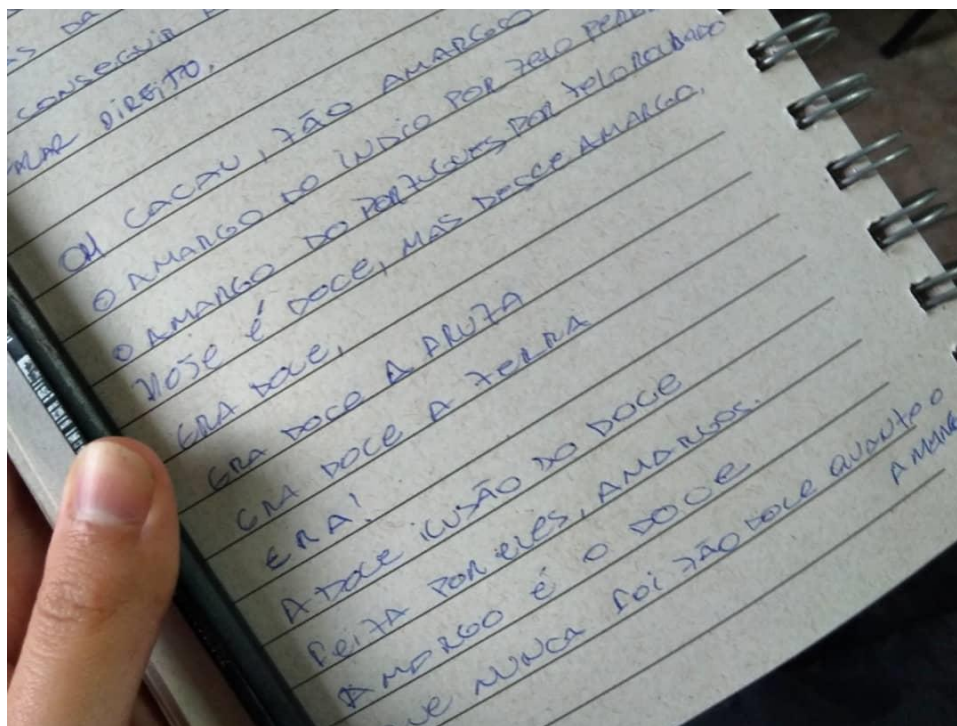 S DA
CONSEGUIR
DIREITO.
OH CACAU, TÃO AMARGO
O AMARGO DO INDIO POR TELO
O AMARGO DO PORTUGUES POR TELO ROUBADO
HOJE É DOCE, MAS DESCE AMARGO.
ERA DOCE,
ERA DOCE A FRUTA
ERA DOCE A TERRA
ERA!
A DOCE ILUSÃO DO DOCE
FEITA POR ELES, AMARGOS.
AMARGO É O DOCE
QUE NUNCA FOI TÃO DOCE QUANTO O
AMARGO